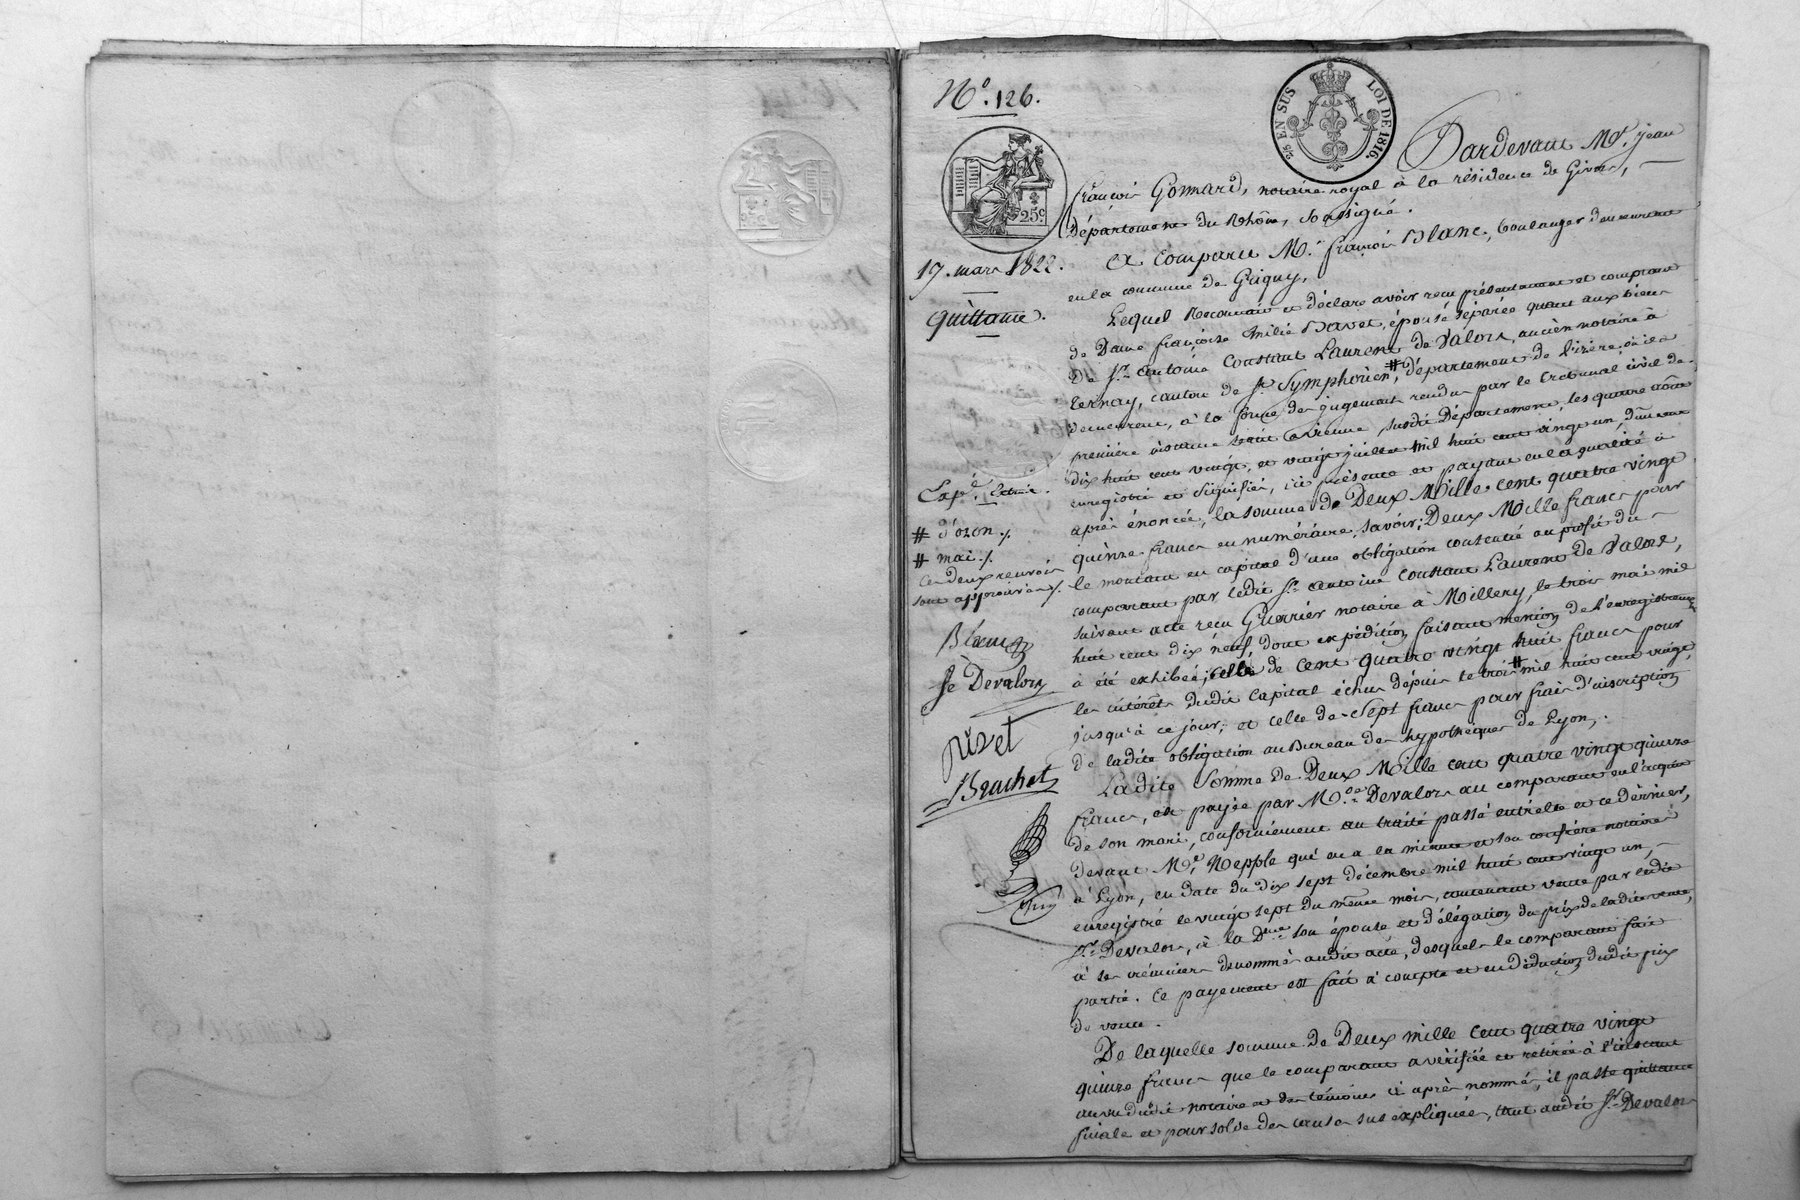 N.° 126.
2/5 EN SUS LOI DE 1816.
25c
17. mars 1822.
Quittance.
Expé. Extrait.
# d'ozon ./.
# mai ./.
Ces deux renvois
sont approuvés ./.
Blanc
fe Devalors
Rivet
Brachet
Pardevant Me. jean
françois Gonnard, notaire royal à la résidence de Givors,
Département du Rhône, soussigné.
est comparu Mr. françois Blanc, boulanger demeurant
en la commune de Grigny,
Lequel Reconnait et déclare avoir reçu présentement et comptant
de Dame françoise Emilie Bavet, épouse séparée quant aux biens
de Sr. antoine Constant Laurent de Valors, ancien notaire à
ternay, canton de St. Symphorien #, département de l'isère, où ils
demeurent, à la forme des jugements rendus par le tribunal civil de
première instance séant à vienne, susdit Département, les quatre août
dix huit cent vingt, et vingt juillet mil huit cent vingt un, dûment
enregistrés et signifiés, ici présente et payant en la qualité ci
après énoncée, la somme de Deux Mille cent quatre vingt
quinze francs en numéraire, savoir; Deux Mille francs pour
le montant en capital d'une obligation contractée au profit du
comparant par ledit Sr. antoine constant Laurent de Valors,
suivant acte reçu Guerrier notaire à Millery, le trois mai mil
huit cent dix neuf, dont expédition faisant mention de l'enregistrement
a été exhibée; celle de cent quatre vingt huit francs pour
les intérêts dudit Capital échus depuis le trois # mil huit cent vingt,
jusqu'à ce jour; et celle de Sept francs pour frais d'inscription
de ladite obligation au Bureau des hypothèques de Lyon,.
Ladite Somme de Deux Mille cent quatre vingt quinze
francs, est payée par Mde. Devalors au comparant en l'acquit
de son mari, conformément au traité passé entr'elle et ce dernier,
devant Me. Nepple qui en a la minute et son confrère notaires
à Lyon, en date du dix sept décembre mil huit cent vingt un,
enregistré le vingt sept du même mois, contenant vente par ledit
Sr. Devalors, à la Dme. son épouse et délégation du prix de ladite vente,
à ses créanciers dénommés audit acte, desquels le comparant fait
partie. Ce payement est fait à compte et en déduction dudit prix
de vente.
De laquelle somme de Deux mille Cent quatre vingt
quinze francs que le comparant a vérifiée et retirée à l'instant
au vu dudit notaire et des témoins ci après nommés, il passe quittance
finale et pour solde des causes sus expliquées, tant audit Sr. Devalors